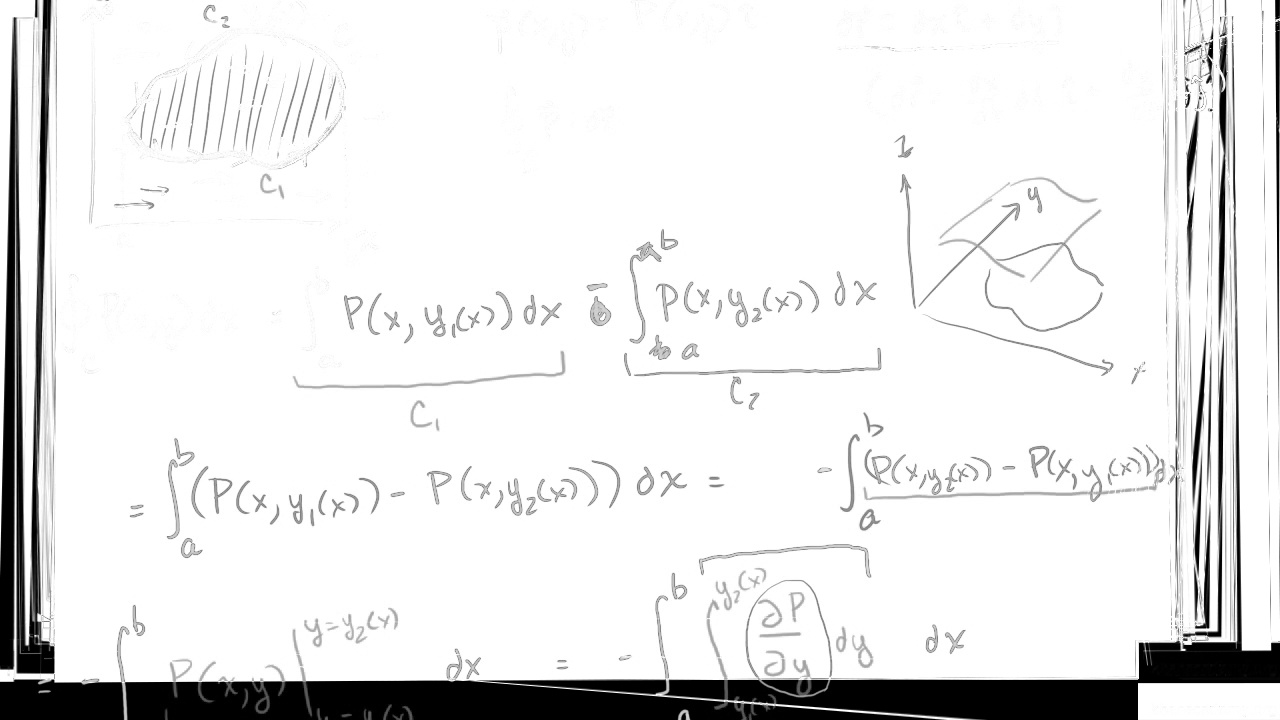 C₂
C₁
y
∫ₐᵇ P(x, y₁(x)) dx - ∫ₐᵇ P(x, y₂(x)) dx
C₁ C₂
= ∫ₐᵇ (P(x, y₁(x)) - P(x, y₂(x))) dx = - ∫ₐᵇ (P(x, y₂(x)) - P(x, y₁(x))) dx
= - ∫ᵇ P(x, y) | y = y₂(x) y = y₁(x) dx = - ∫ₐᵇ ∫_{y₁(x)}^{y₂(x)} ∂P/∂y dy dx